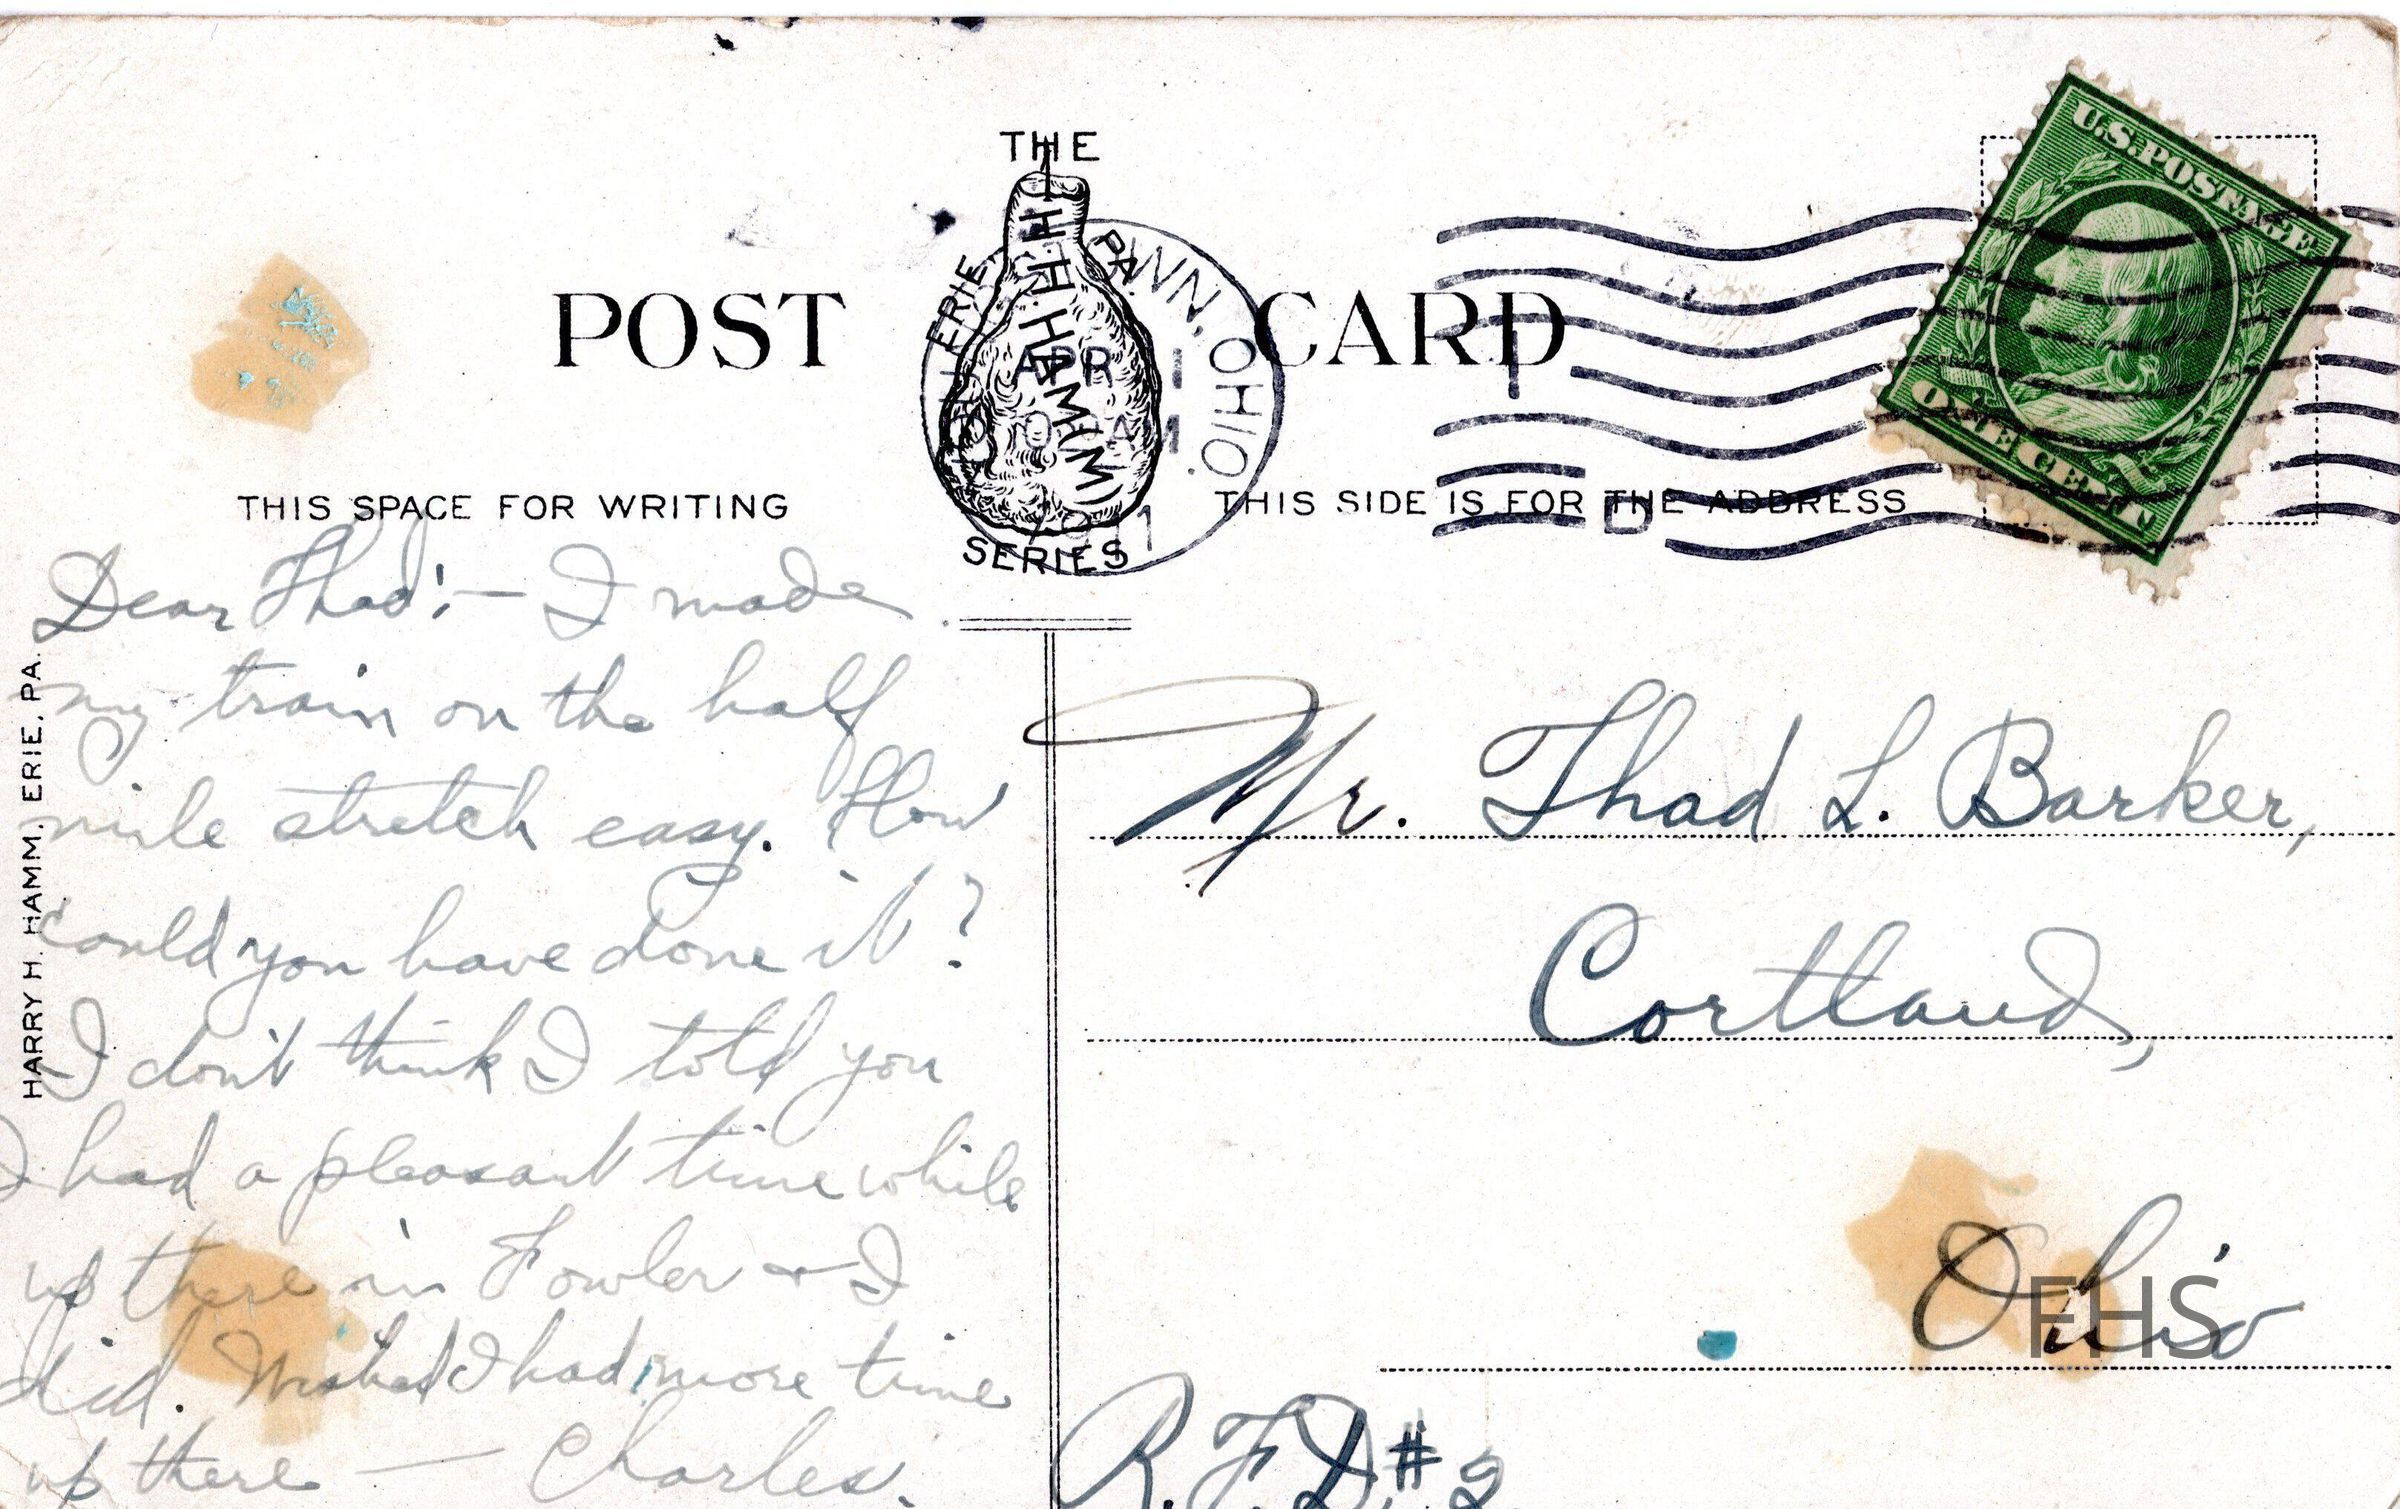 THE
H.H.HAMM(M)
ERIE PA.
SERIES
POST CARD
WN, OHIO.
APR 1
AM
1911
U.S. POSTAGE
ONE CENT
THIS SPACE FOR WRITING
THIS SIDE IS FOR THE ADDRESS
D
HARRY H. HAMM, ERIE, PA.
Dear Thad:— I made
my train on the half
mile stretch easy. How
could you have done it?
I don't think I told you
I had a pleasant time while
up there in Fowler & I
did. Wished I had more time
up there — Charles.
Mr. Thad L. Barker,
Cortland,
Ohio
R.F.D. # 2
FHS